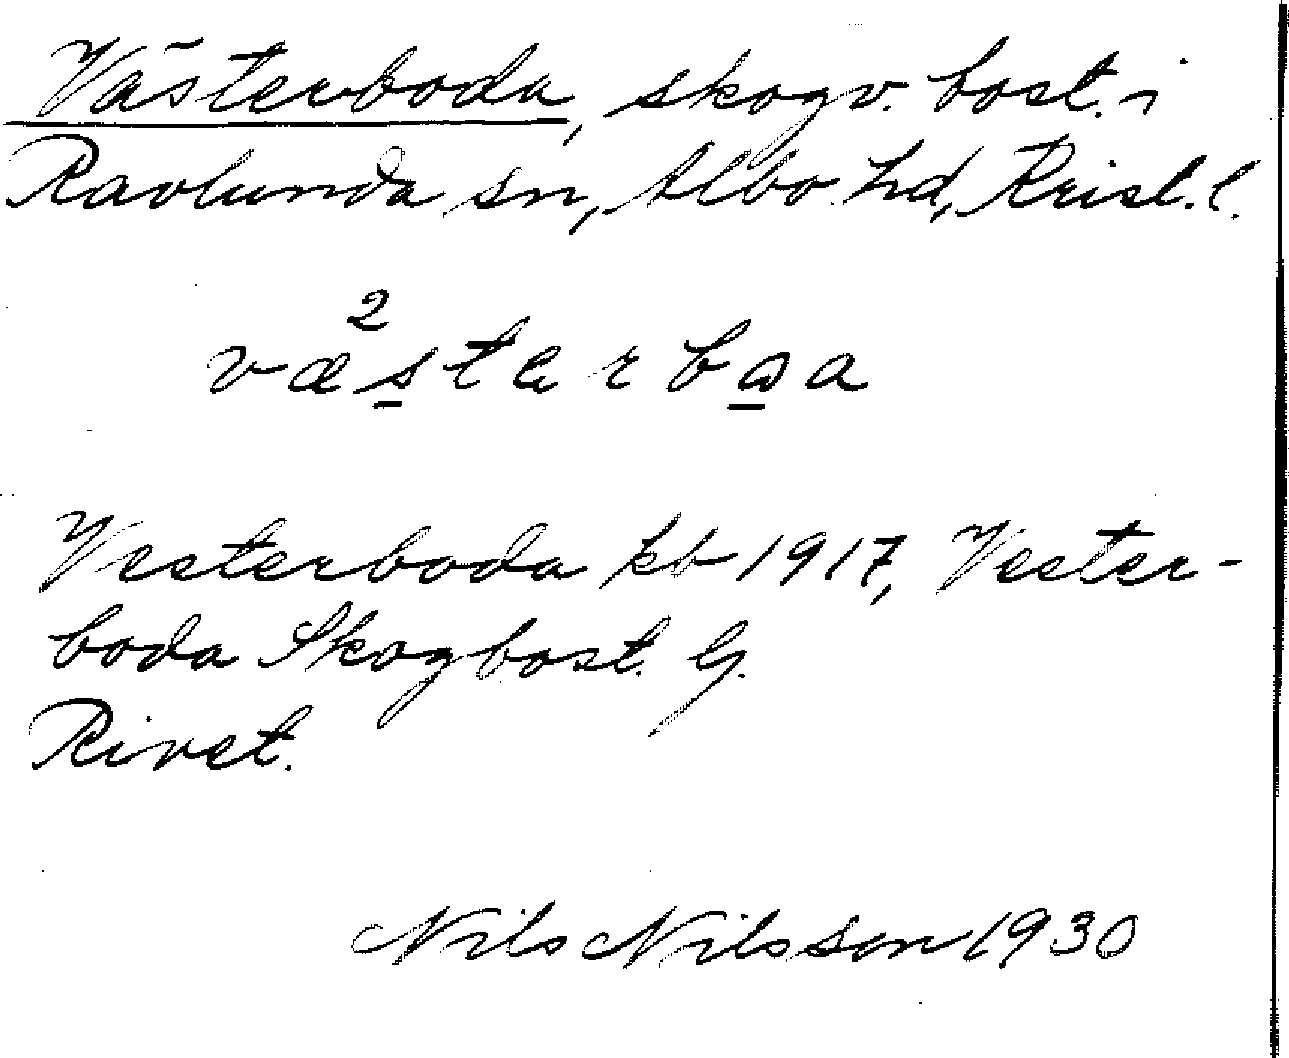 Västerboda, skogv. bost. i
Ravlunda sn, Albo hd, Krist. l.
2
væsterbωa
Vesterboda kb 1917, Vester-
boda Skogbost. G.
Rivet.
Nils Nilsson 1930